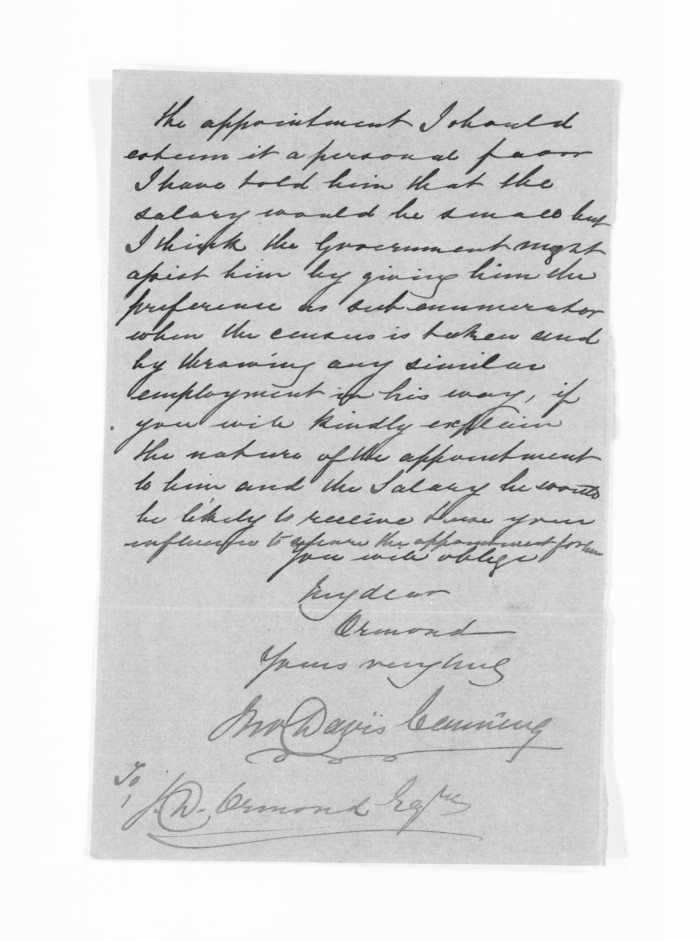 the appointment I should
esteem it a personal favor
I have told him that the
salary would be small but
I think the Government might
assist him by giving him the
preference as sub enumerator
when the census is taken and
by throwing any similar
employment in his way, if
you will kindly explain
the nature of the appointment
to him and the Salary he would
be likely to receive & use your
influence to secure the appointment for him
You will oblige
My dear
Ormond
Yours very truly
Jno Davis Canning
To,
J. D. Ormond Esqre